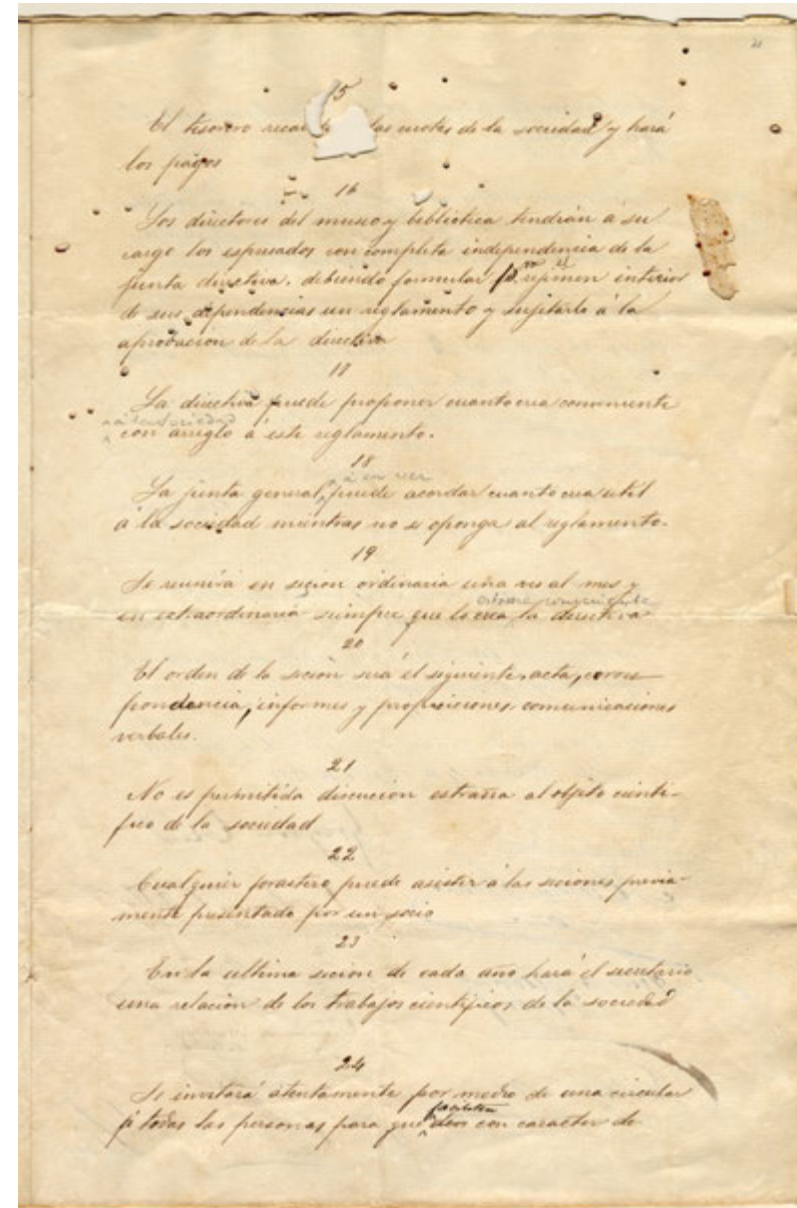 21
15
El tesorero recau las cuotas de la sociedad y hará
los pagos
16
Los directores del museo y biblioteca tendrán á su
cargo los espresados con completa independencia de la
junta directiva. debiendo formular régimen interior
de sus dependencias un reglamento y sujetarlo á la
aprobación de la directiva
17
La directiva puede proponer cuanto crea conveniente
con arreglo á este reglamento.
18
á su vez
La junta general, puede acordar cuanto crea útil
á la sociedad mientras no se oponga al reglamento.
19
Se reunirá en seción ordinaria una ves al mes y
en extraordinaria siempre que lo crea la directiva
20
El orden de la seción será el siguiente, acta, corres
pondencia, informes y proposiciones comunicaciones
verbales.
21
No es permitida discucion estraña al objeto cientí-
fico de la sociedad
22
Cualquier forastero puede asistir á las seciones previa-
mente presentado por un socio
23
En la ultima secion de cada año hará el secretario
una relacion de los trabajos cientificos de la sociedad
24
Se invitará atentamente por medio de una circular
á todas las personas para que den con caracter de